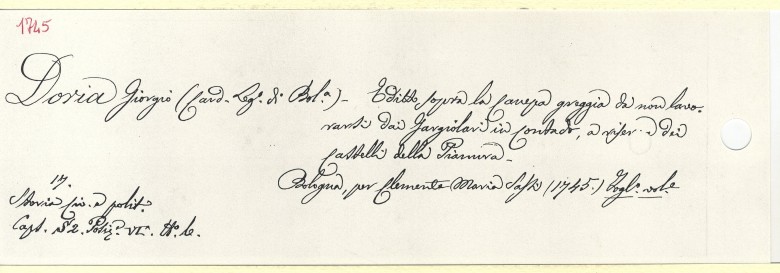 1745
Doria Giorgio (Card. Leg.º di Bol.ª) - Editto sopra la Canepa greggia da non lavo-
rarsi dai Gargiolari in Contado, a riser.ª dei
Castelli della Pianura -
Bologna, per Clemente Maria Sassi (1745.) Fogl.º vol.e
17.
Storia civ. e polit.
Cart. S 2.